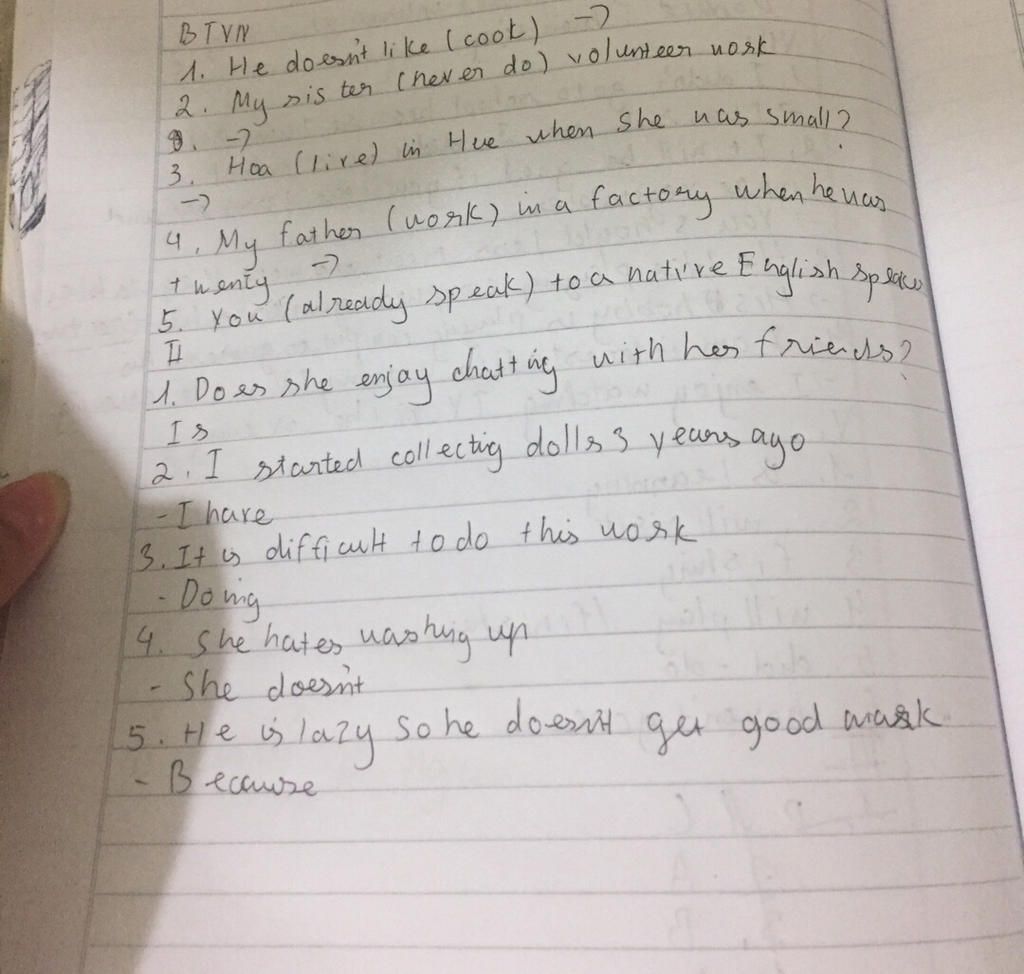 BTVN
1. He doesn't like (cook) →
2. My sister (never do) volunteer work
→
3. Hoa (live) in Hue when she was small?
→
4. My father (work) in a factory when he was
twenty →
5. You (already speak) to a native English speaker
II
1. Does she enjay chatting with her friends?
Is
2. I started collectig dolls 3 years ago
- I have
3. It is difficult to do this work
- Doing
4. She hates washing up
- She doesn't
5. He is lazy so he doesn't get good mark
- Because